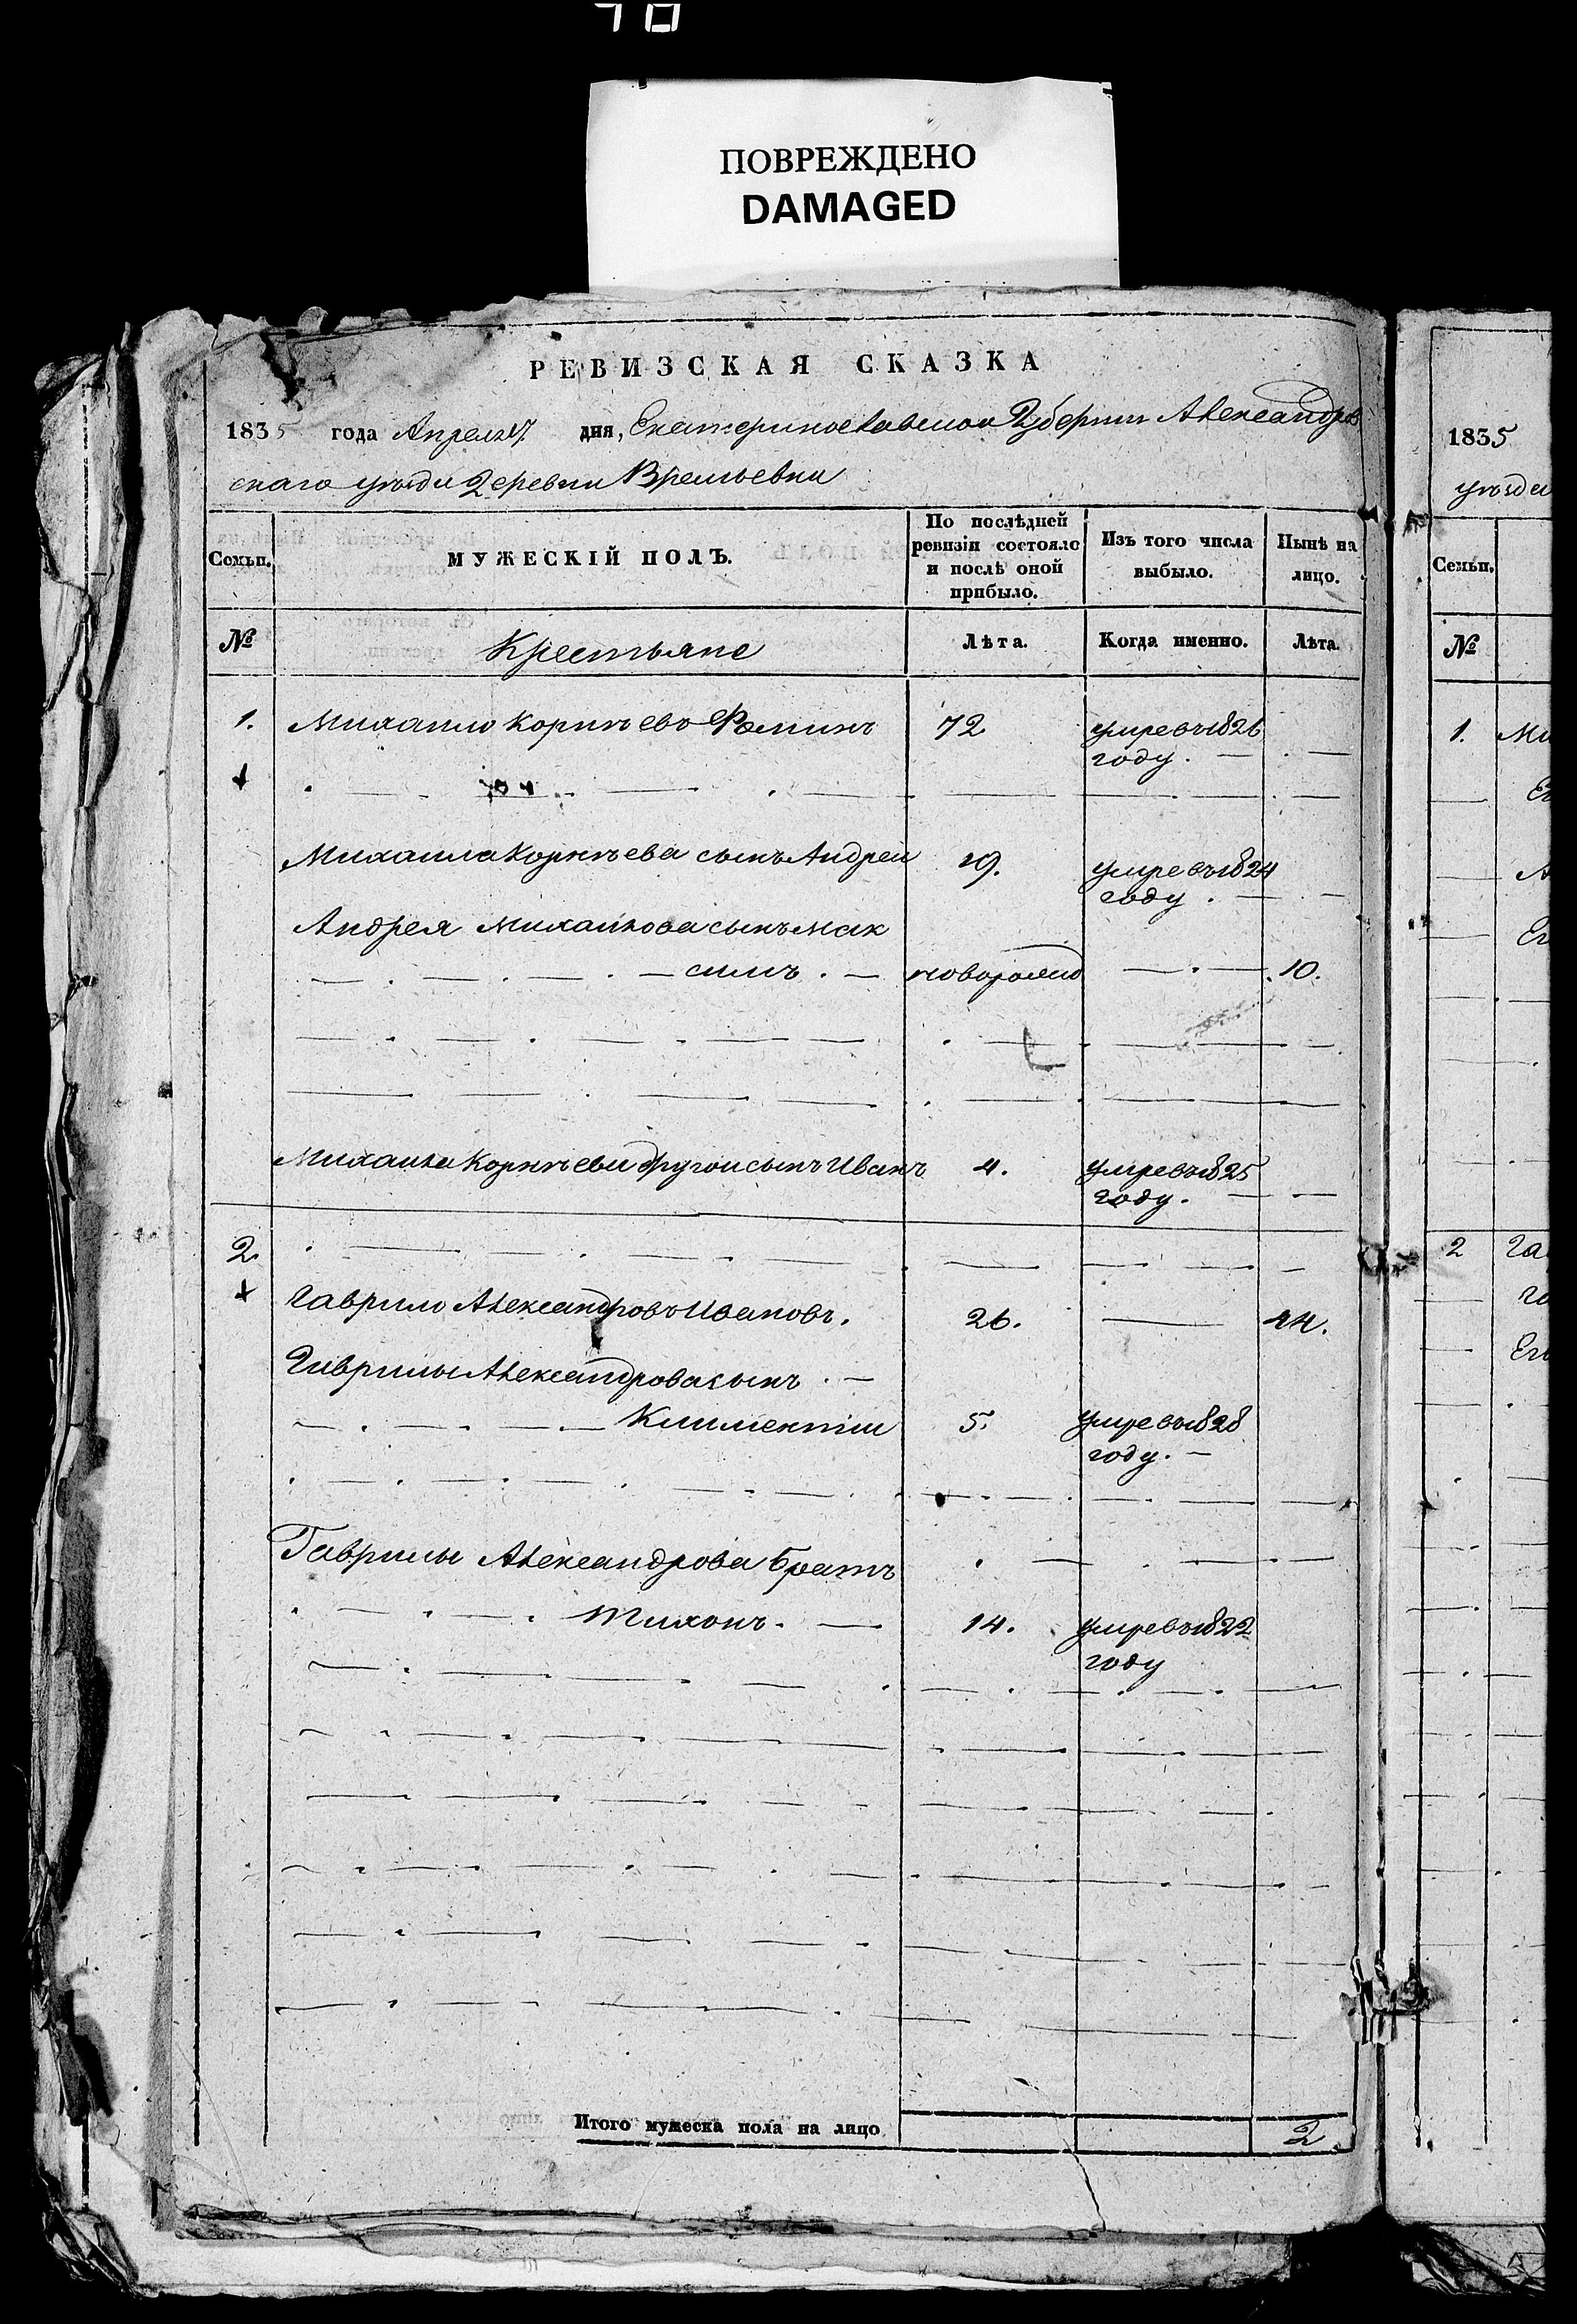 ПОВРЕЖДЕНО
DAMAGED
РЕВИЗСКАЯ СКАЗКА
1835 года Апреля 17 дня, Екатеринославской Губернии Александров
скаго уѣзда Деревни Времьевки
Семьи. МУЖЕСКІЙ ПОЛЪ. По послѣдней ревизіи состояло и послѣ оной прибыло. Изъ того числа выбыло. Нынѣ на лицо.
№ Крестьяне Лѣта. Когда именно. Лѣта.
1. Михаило Корнѣевъ Фоминъ 72 умре въ 1826
году.
Михаила Корнѣева сынъ Андреи 19. умре въ 1824
году.
Андрея Михаилова сынъ Мак
симъ. новорожд 10.
Михаила Корнѣева другои сынъ Иванъ 4. умре въ 1825
году.
2.
Гаврило Александровъ Ивановъ. 26. 44.
Гаврилы Александрова сынъ
Климентіи 5. умре въ 1828
году.
Гаврилы Александрова братъ
Тихонъ. 14. умре въ 1822
году
Итого мужеска пола на лицо 2.
1835
уѣзда
Семьи.
№
1.
2